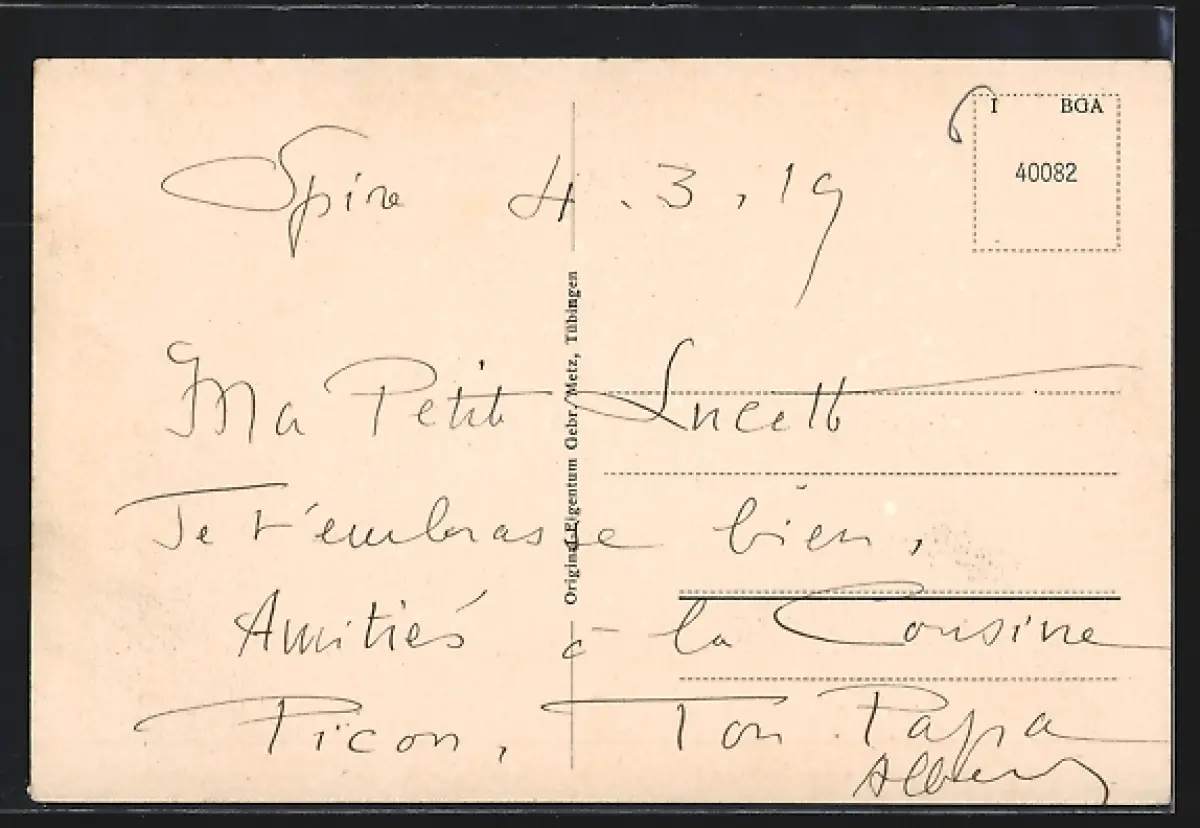 I BGA
40082
Spire 4.3.19
Original-Eigentum Gebr. Metz, Tübingen
Ma Petit Lucett
Je t'embrasse bien,
Amitiés à la Cousine
Picon, Ton Papa
Albert